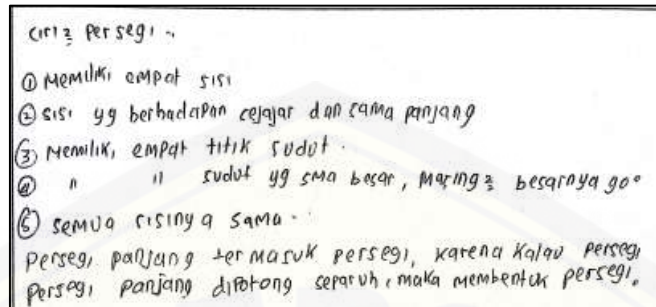 Ciri² persegi ..
① Memiliki empat sisi
② sisi yg berhadapan cejajar dan sama panjang
③ Memiliki empat titik sudut.
④ " " sudut yg sma besar, masing² besarnya 90°
⑤ semua sisinya sama..
Persegi panjang termasuk persegi, karena kalau persegi
persegi panjang dipotong separuh, maka membentuk persegi.